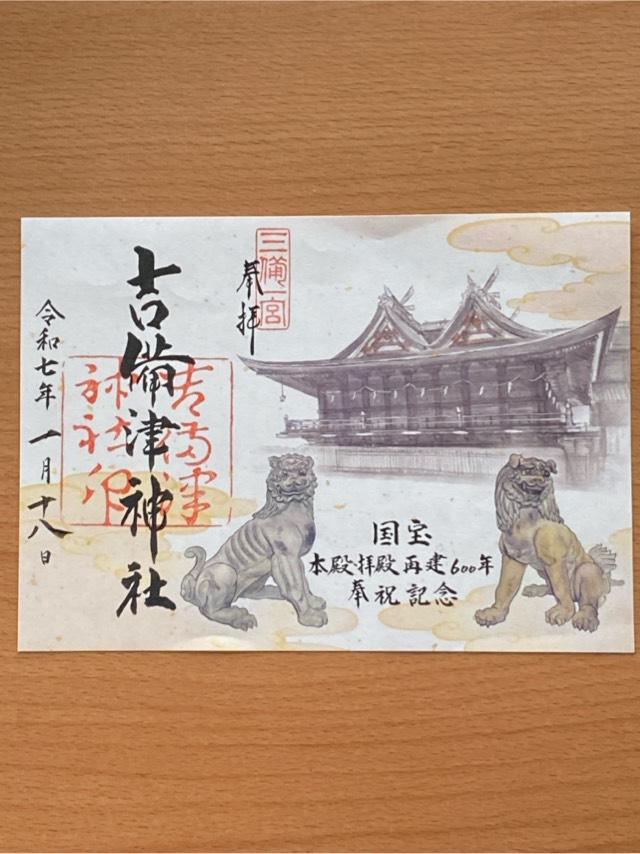 三備一宮
奉拝
吉備津神社
吉備津
神社印
令和七年 一月十八日
国宝
本殿・拝殿再建600年
奉祝記念